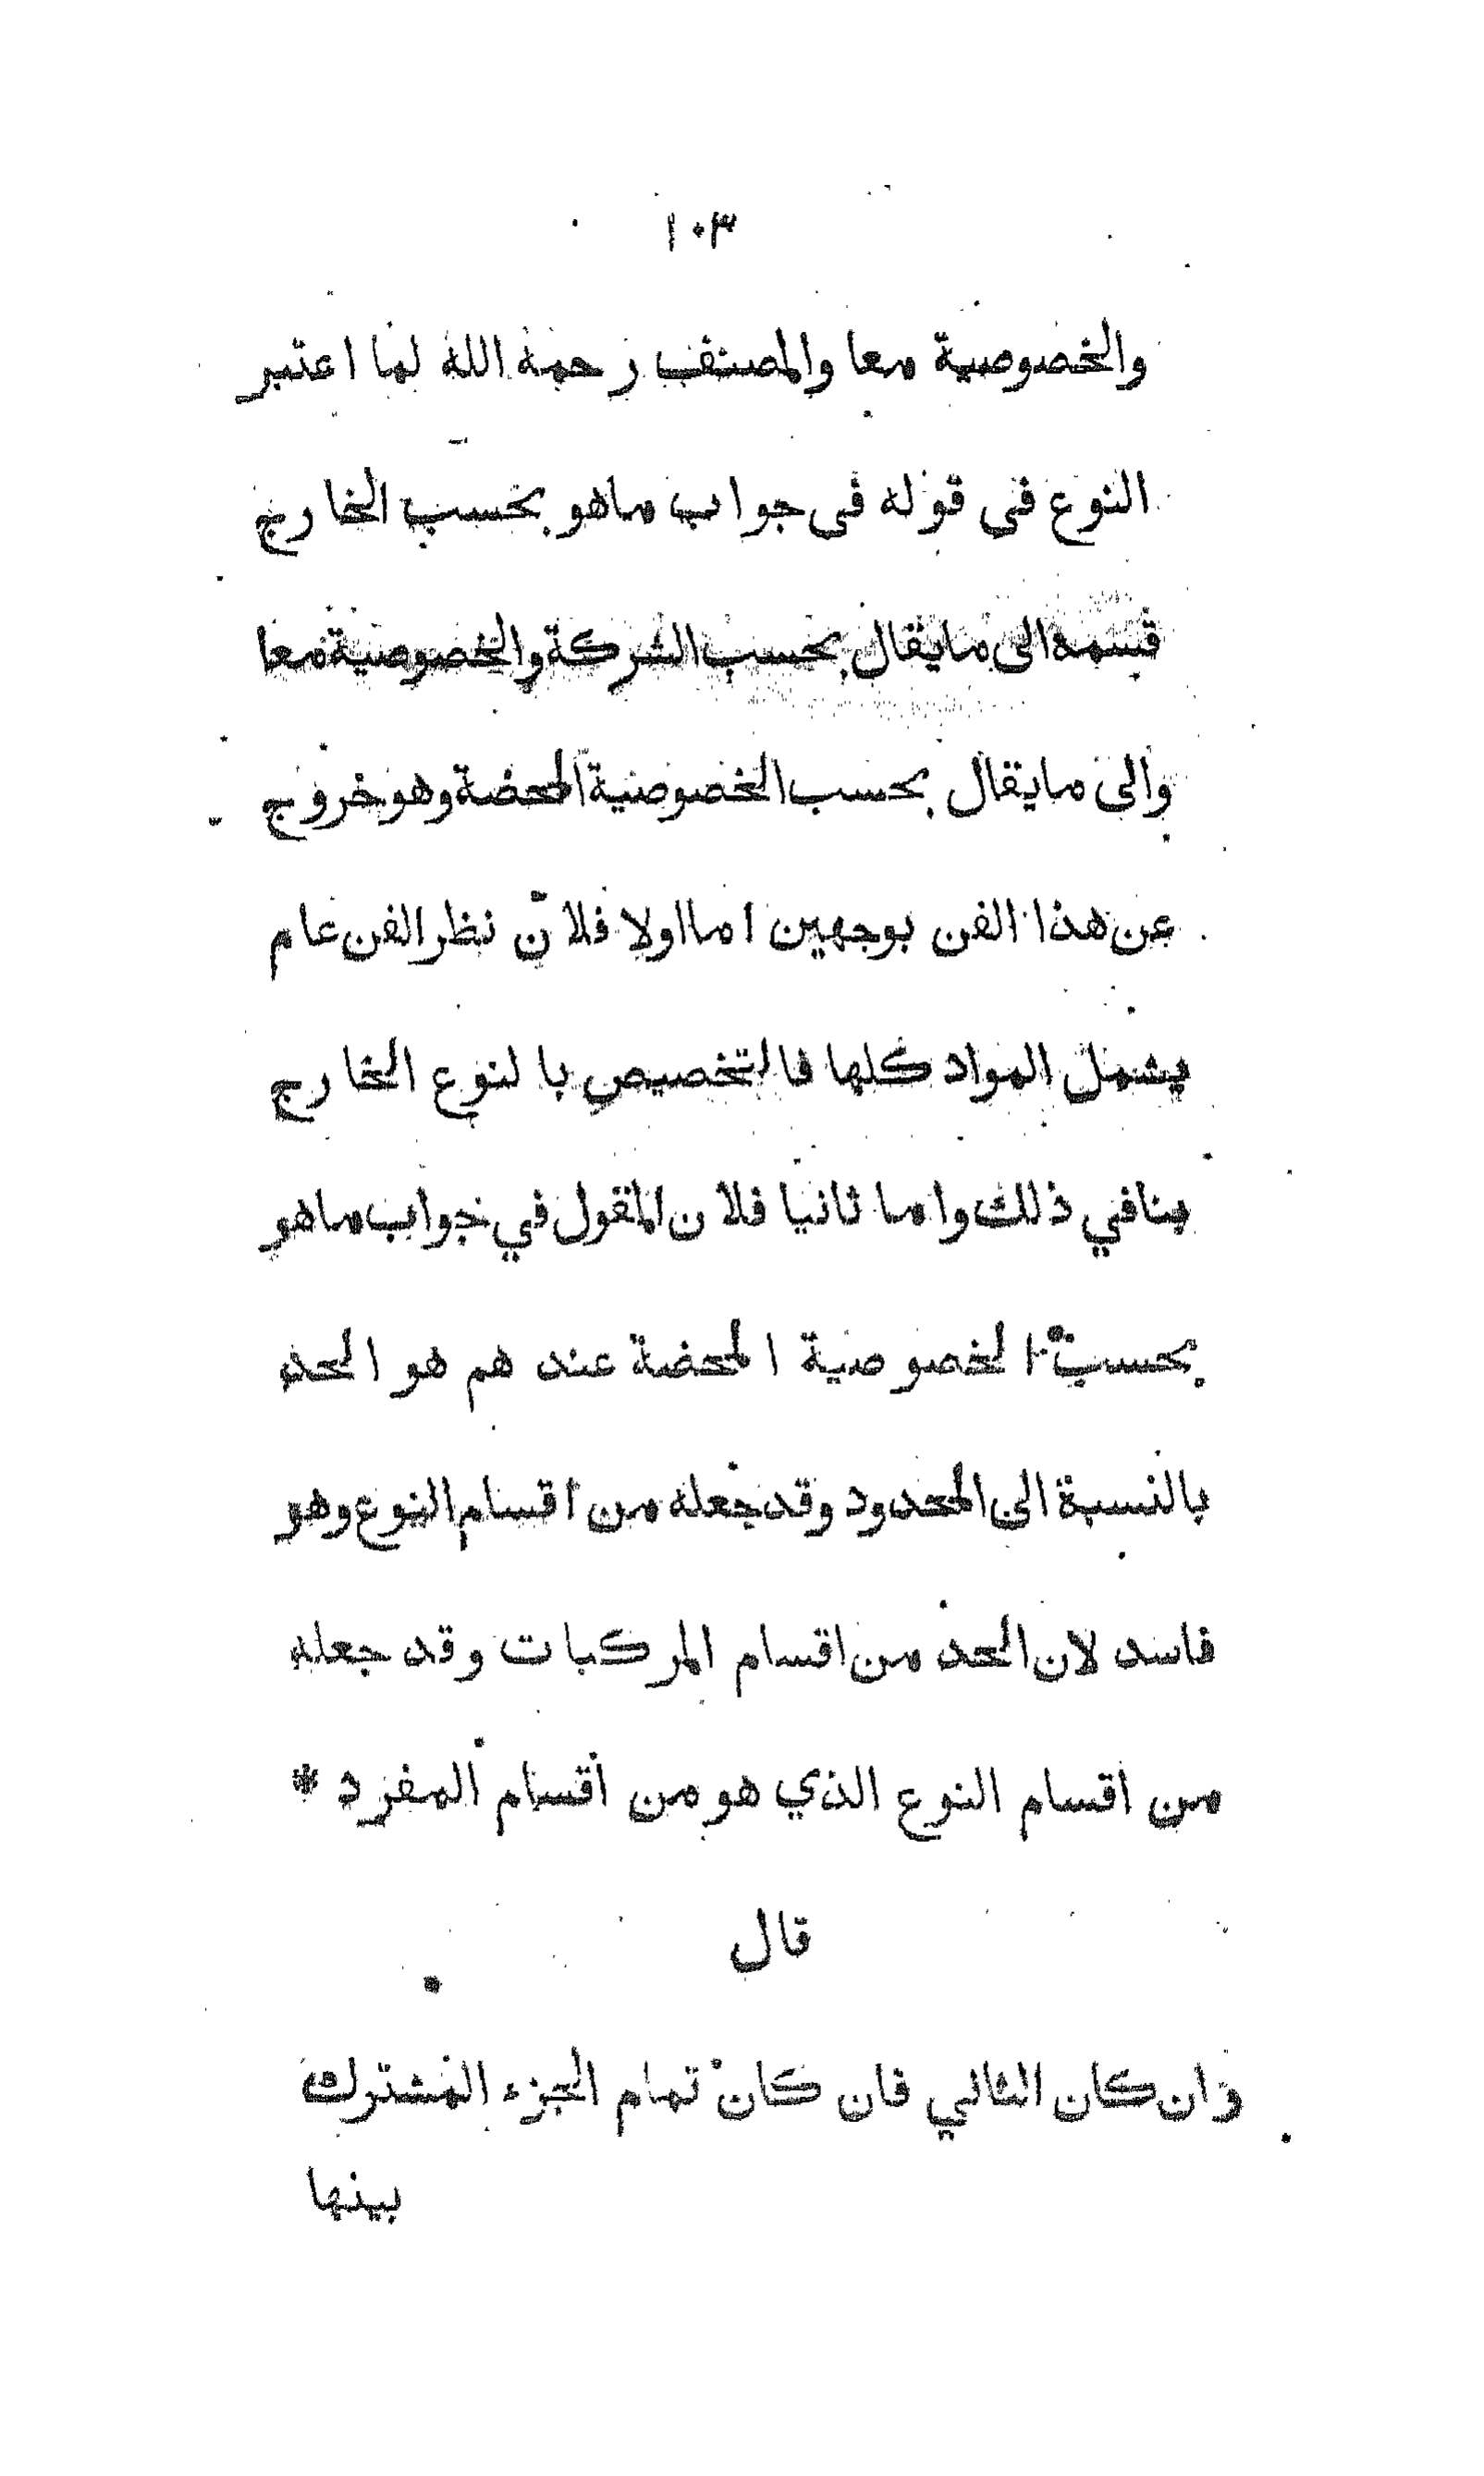 ١٠٣
والخصوصية معا والمصنف رحمه الله لما اعتبر
النوع فى قوله فى جواب ماهو بحسب الخارج
قسمه الى مايقال بحسب الشركة والخصوصية معا
والى مايقال بحسب الخصوصية المحضة وهو خروج
عن هذا الفن بوجهين اما اولا فلانّ نظر الفن عام
يشمل المواد كلها فالتخصيص بالنوع الخارج
ينافي ذلك واما ثانيا فلان المقول في جواب ماهو
بحسب الخصوصية المحضة عندهم هو الحد
بالنسبة الى المحدود وقد جعله من اقسام النوع وهو
فاسد لان الحد من اقسام المركبات وقد جعله
من اقسام النوع الذي هو من اقسام المفرد *
قال
وان كان الثاني فان كان تمام الجزء المشترك
بينها